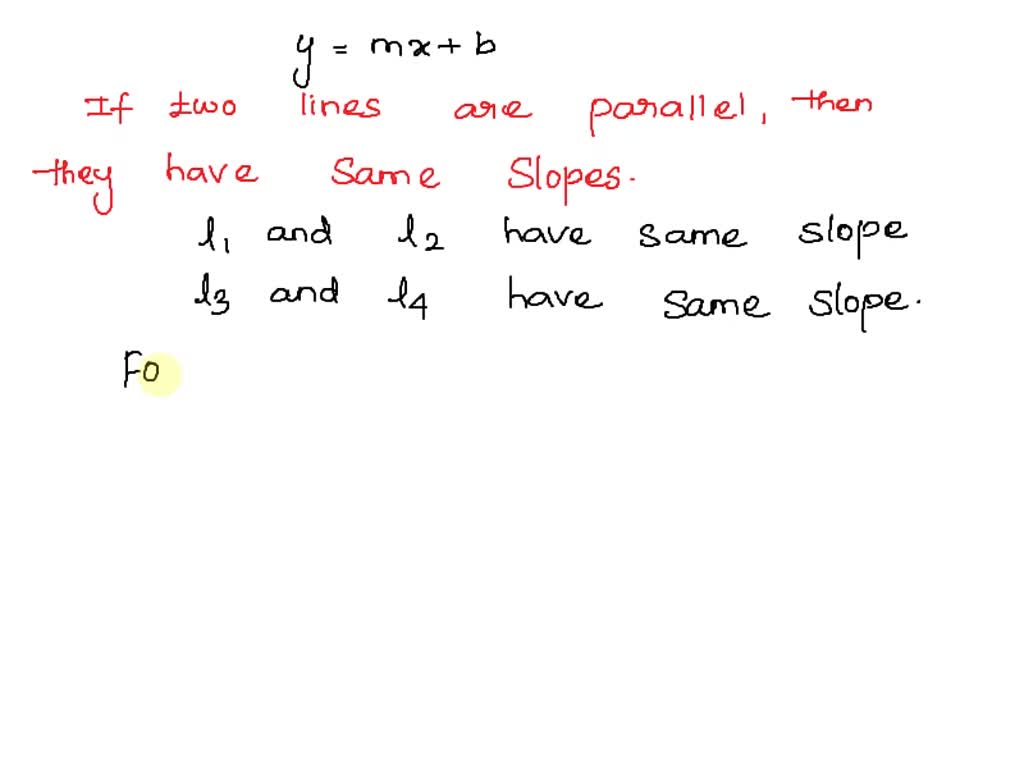 y = mx + b
If two lines are parallel, then
they have Same Slopes.
l1 and l2 have same slope
l3 and l4 have same slope.
Fo